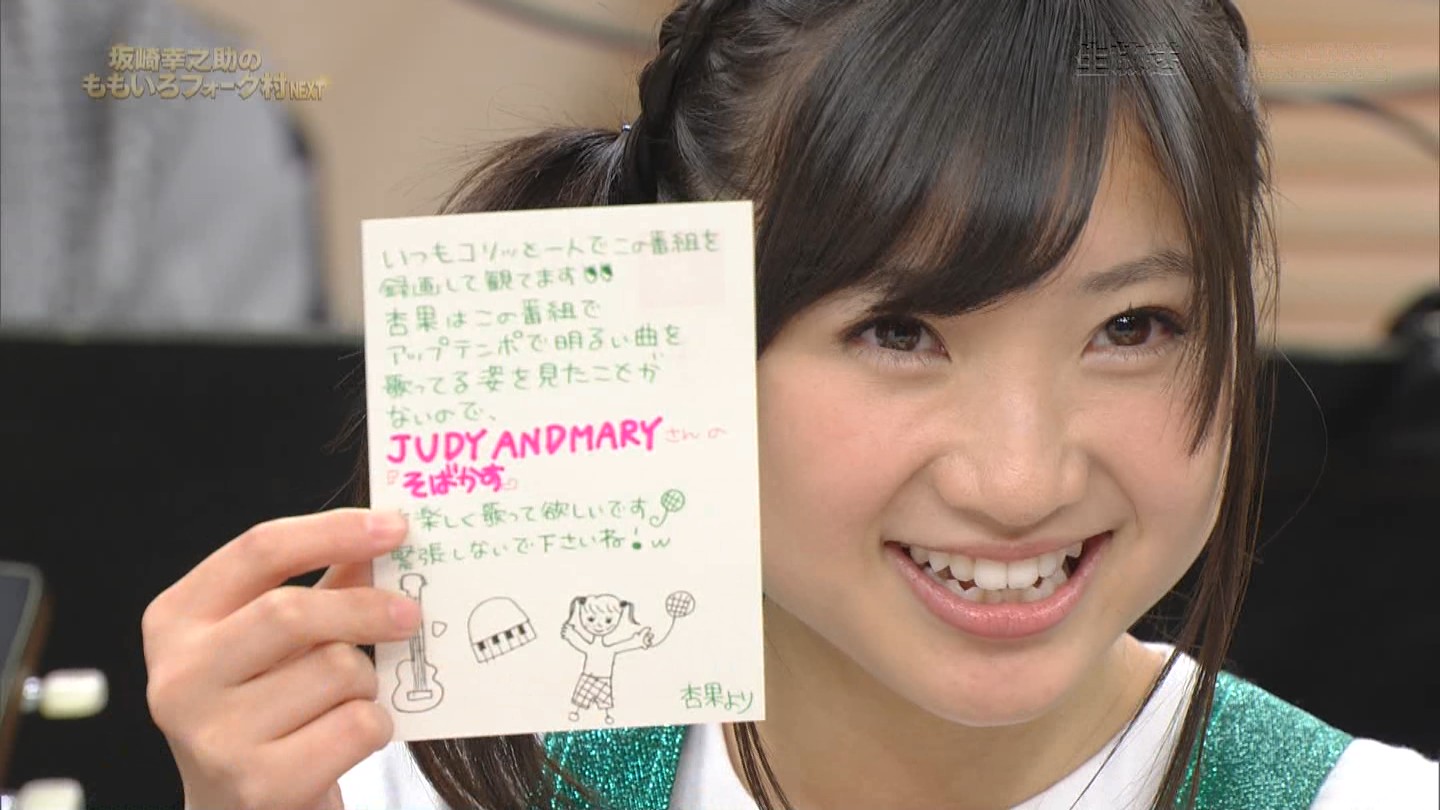 坂崎幸之助の
ももいろフォーク村NEXT
生放送
いつもコソッと一人でこの番組を
録画して観てます
杏果はこの番組で
アップテンポで明るい曲を
歌ってる姿を見たことが
ないので、
JUDY AND MARY さんの
『そばかす』
楽しく歌って欲しいです
緊張しないで下さいね!w
杏果より